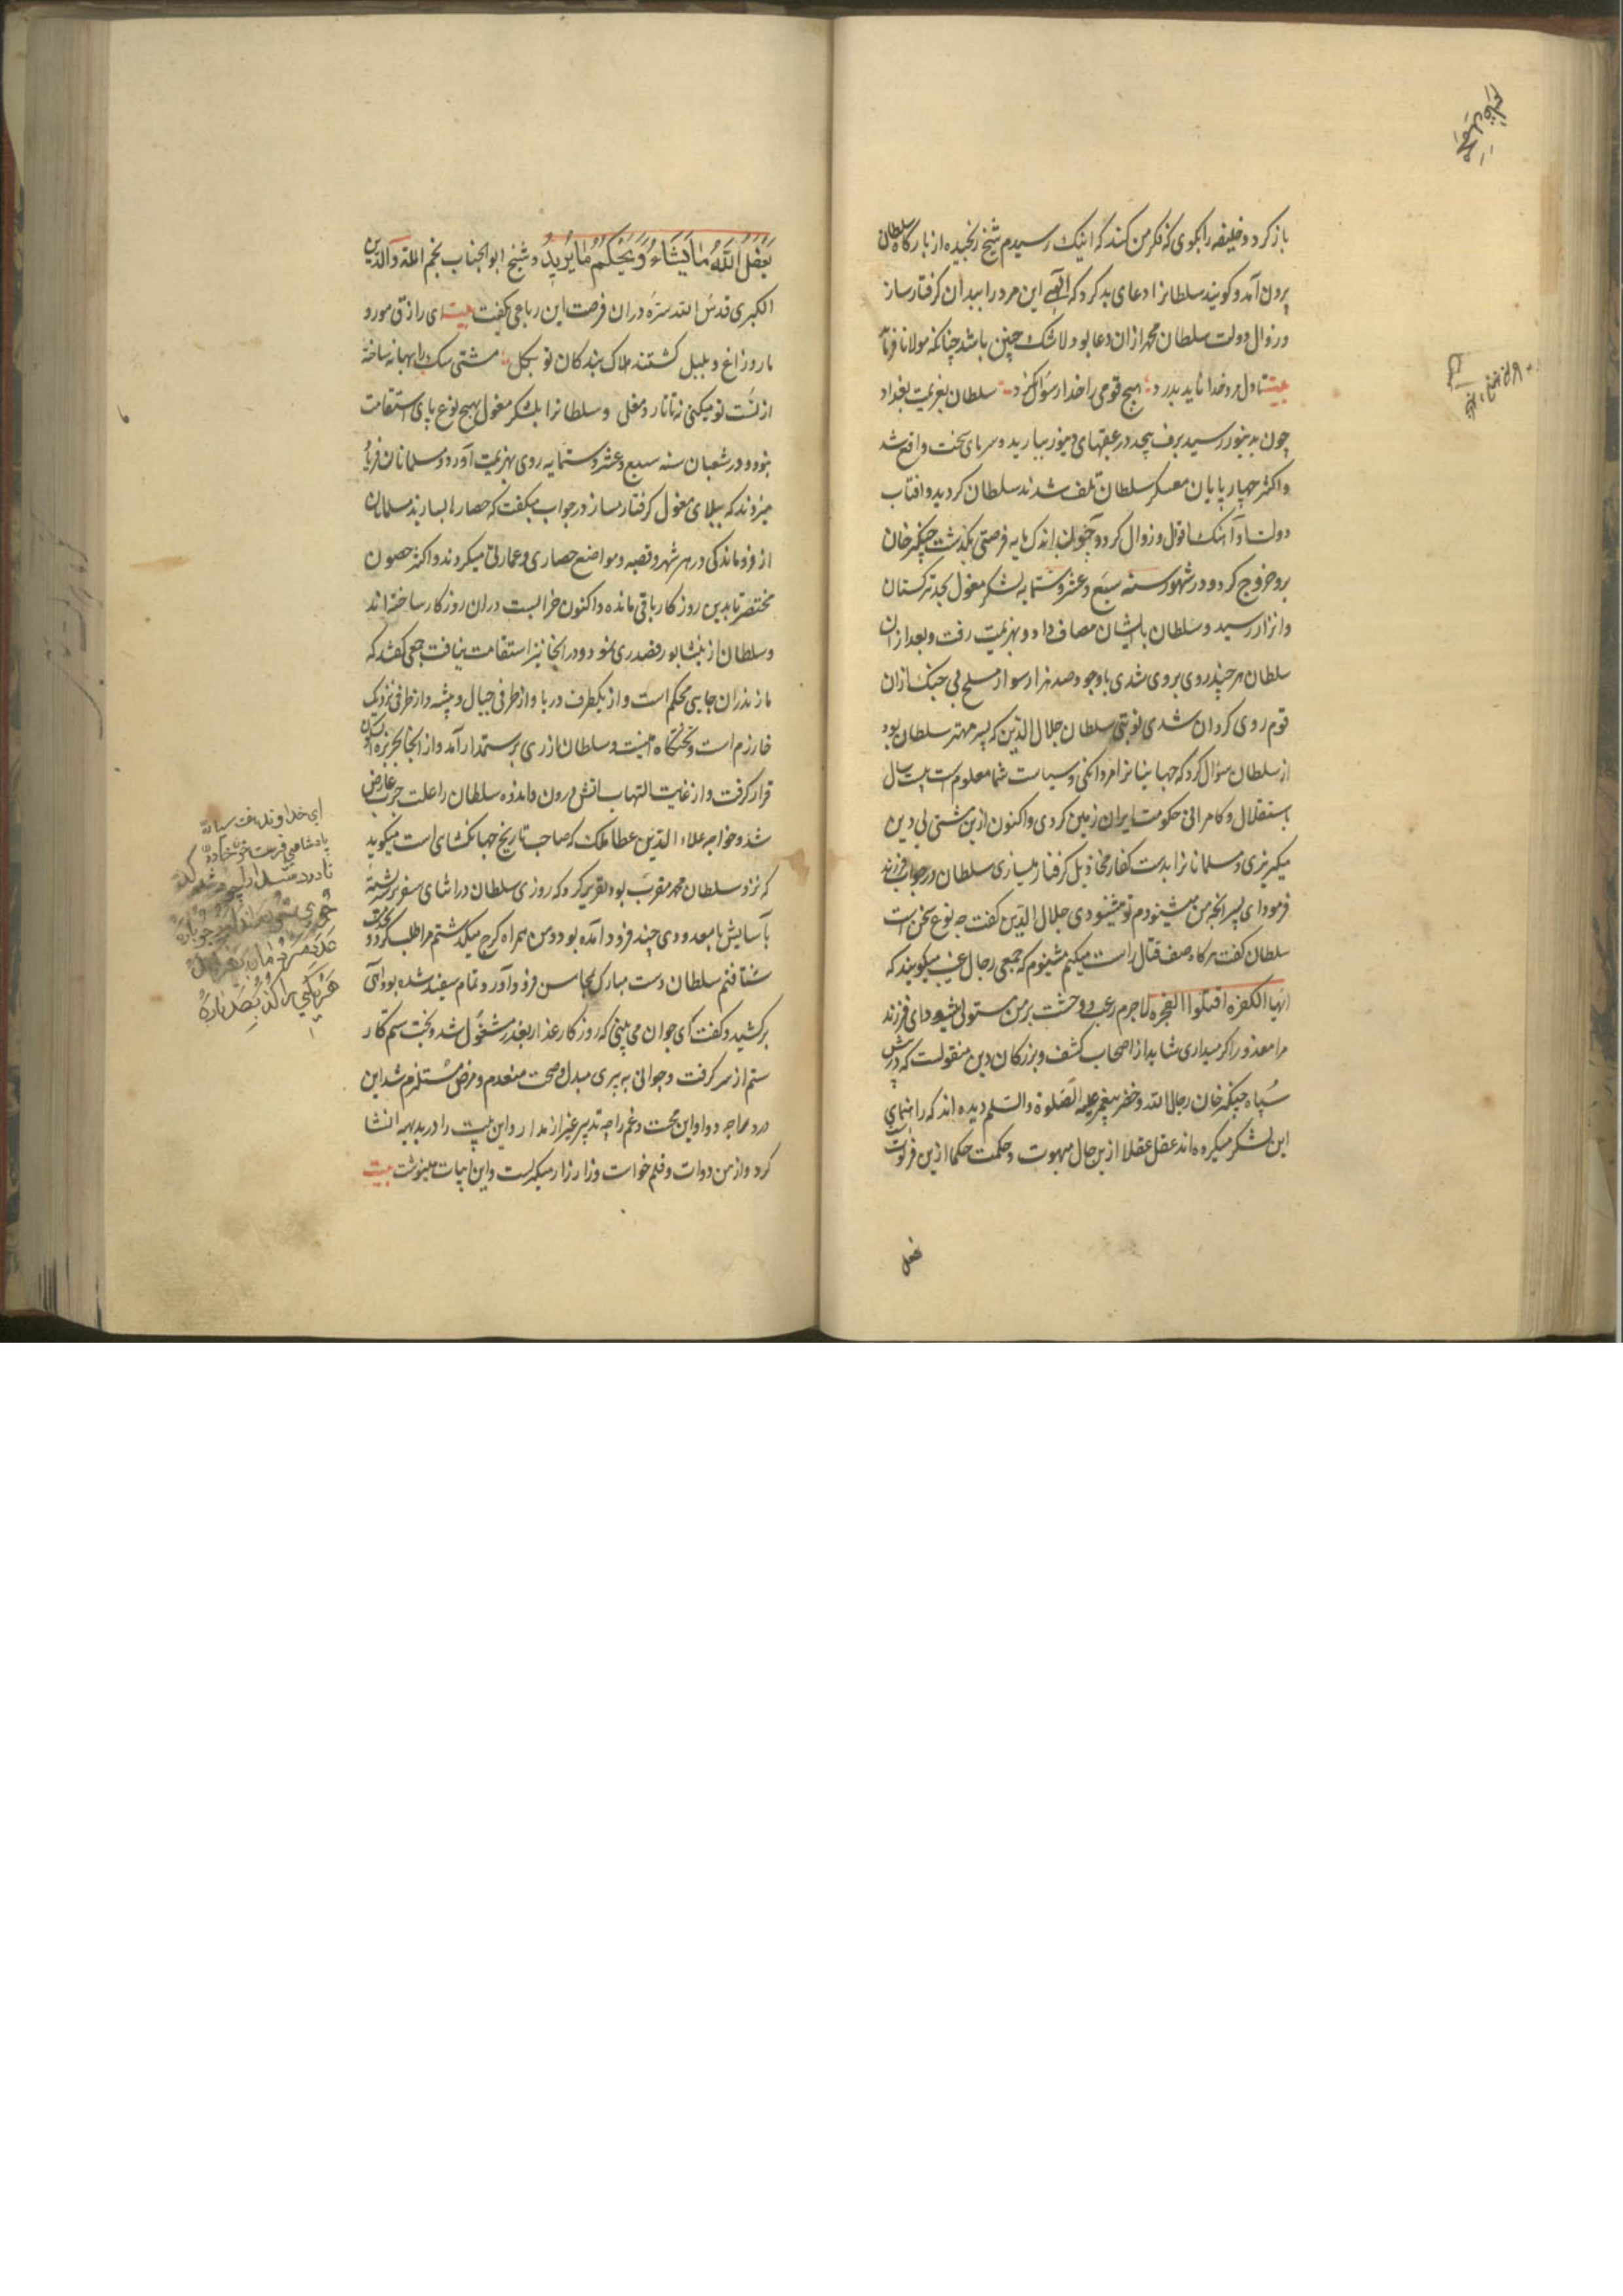 باز کرد و خلیفه را بگوی که فکر من کند که اینک رسیدم شیخ رنجیده از بارگاه سلطان
بیرون آمد و کویند سلطانرا دعای بد کرد که الهی این مرد را ببدان گرفتار ساز
و زوال دولت سلطان محمد ازان دعا بود و لاشک چنین باشد چنانکه مولانا فرماید
بیت تا دل مرد خدا ناید بدرد هیچ قومی را خدا رسوا نکرد سلطان بعزیمت بغداد
چون به دینور رسید برف بیحد در عقبهای دینور ببارید و سرمای سخت واقع شد
و اکثر چهارپایان معسکر سلطان تلف شدند سلطان کردید و افتاب
دولت او آهنک افول و زوال کرد و چون اندک مایه فرصتی بگذشت چنکیز خان
برو خروج کرد و در شهور سنه سبع و عشر و ستمایه لشکر مغول بحد ترکستان
و اترار رسید و سلطان بایشان مصاف داد و بهزیمت رفت و بعد از ان
سلطان هر چند روی بروی شدی با وجود صد هزار سوار مسلح بی جنک ازان
قوم روی کردان شدی نوبتی سلطان جلال الدین که پسر مهتر سلطان بود
از سلطان سؤال کرد که جهانیانرا مردانکی و سیاست شما معلوم است بیست سال
باستقلال و کامرانی حکومت ایران زمین کردی و اکنون ازین مشتی بی دین
میکریزی و مسلمانانرا بدست کفار مخاذیل گرفتار میسازی سلطان در جواب فرزند
فرمود ای پسر انچه من میشنودم تو نمیشنودی جلال الدین کفت چه نوع سخن است
سلطان کفت هرکاه صف قتال راست میکنم میشنوم که جمعی رجال غیب میکویند که
ایها الکفره اقتلوا الفجره لاجرم رعب و وحشت بر من مستولی میشود ای فرزند
مرا معذور اکر میداری شاید از اصحاب کشف و بزرکان دین منقولست که در پیش
سپاه جنکیز خان رجال الله و خضر پیغمبر علیه الصلوة والسلم دیده اند که راهنمای
این لشکر میکرده اند عقل عقلا ازین حال مبهوت و حکمت حکما ازین فرتوت
یفعل
یفعل الله ما یشاء و یحکم ما یرید و شیخ ابو الجناب نجم الملة والدین
الکبری قدس الله سره دران فرصت این رباعی کفت بیت ای رازق مور و
مار و زاغ و بلبل کشتند هلاک بندکان تو بکل مشتی سک را بهانه ساخته
از تست تو میکنی نه تاتار و مغل و سلطانرا بلشکر مغول بهیچ نوع پای استقامت
نبود و در شعبان سنه سبع و عشر و ستمایه روی بهزیمت آورد و مسلمانان فریاد
میزدند که ببلای مغول گرفتار مساز در جواب میکفت که حصارها بسازند مسلمانان
از فروماندکی در هر شهر و قصبه و مواضع حصاری و عمارتی میکردند و اکثر حصون
مختصر تا بدین روزکار باقی مانده و اکنون خرابست دران روزکار ساخته اند
و سلطان از نیشابور قصد ری نمود و در انجا نیز استقامت نیافت جمعی کفتند که
مازندران جایی محکم است و از یکطرف دریا و از طرفی جبال و بیشه و از طرفی نزدیک
خارزم است و تختکاه منست و سلطان از ری برستمدار آمد و از انجا بجزیره آبسکون
قرار کرفت و از غایت التهاب اتش درون و اندوه سلطان را علت جرب عارض
شد و خواجه علاء الدین عطا ملک که صاحب تاریخ جهانکشای است میکوید
که نزد سلطان محمد مقرب بود تقریر کرد که روزی سلطان در اثنای سفر بر پشته
بآسایش با معدودی چند فرود آمده بود و من همراه کرج میکذشتم مرا طلب کرد و بخدمت
شتافتم سلطان دست مبارک بمحاسن فرود آورد و تمام سفید شده بود آهی
برکشید و کفت ای جوان می بینی که روزکار غدار بغدر مشغول شد و بخت ستمکار
ستم از سر کرفت و جوانی به پیری مبدل و صحت منعدم و مرض مستلزم شد این
درد را چه دوا و این محنت و غم را چه تدبیر غیر از مدارا و این بیت را در بدیهه انشا
کرد و از من دوات و قلم خواست و زار زار میکریست و این ابیات مینوشت بیت
ای خداوند هفت سیاره
پادشاهی فرست خونخواره
تا در و دشت را چو دشت کند
جوی خون راند او ز جوباره
عدد مردمان بیفزاید
هر یکی را کند بصد پاره